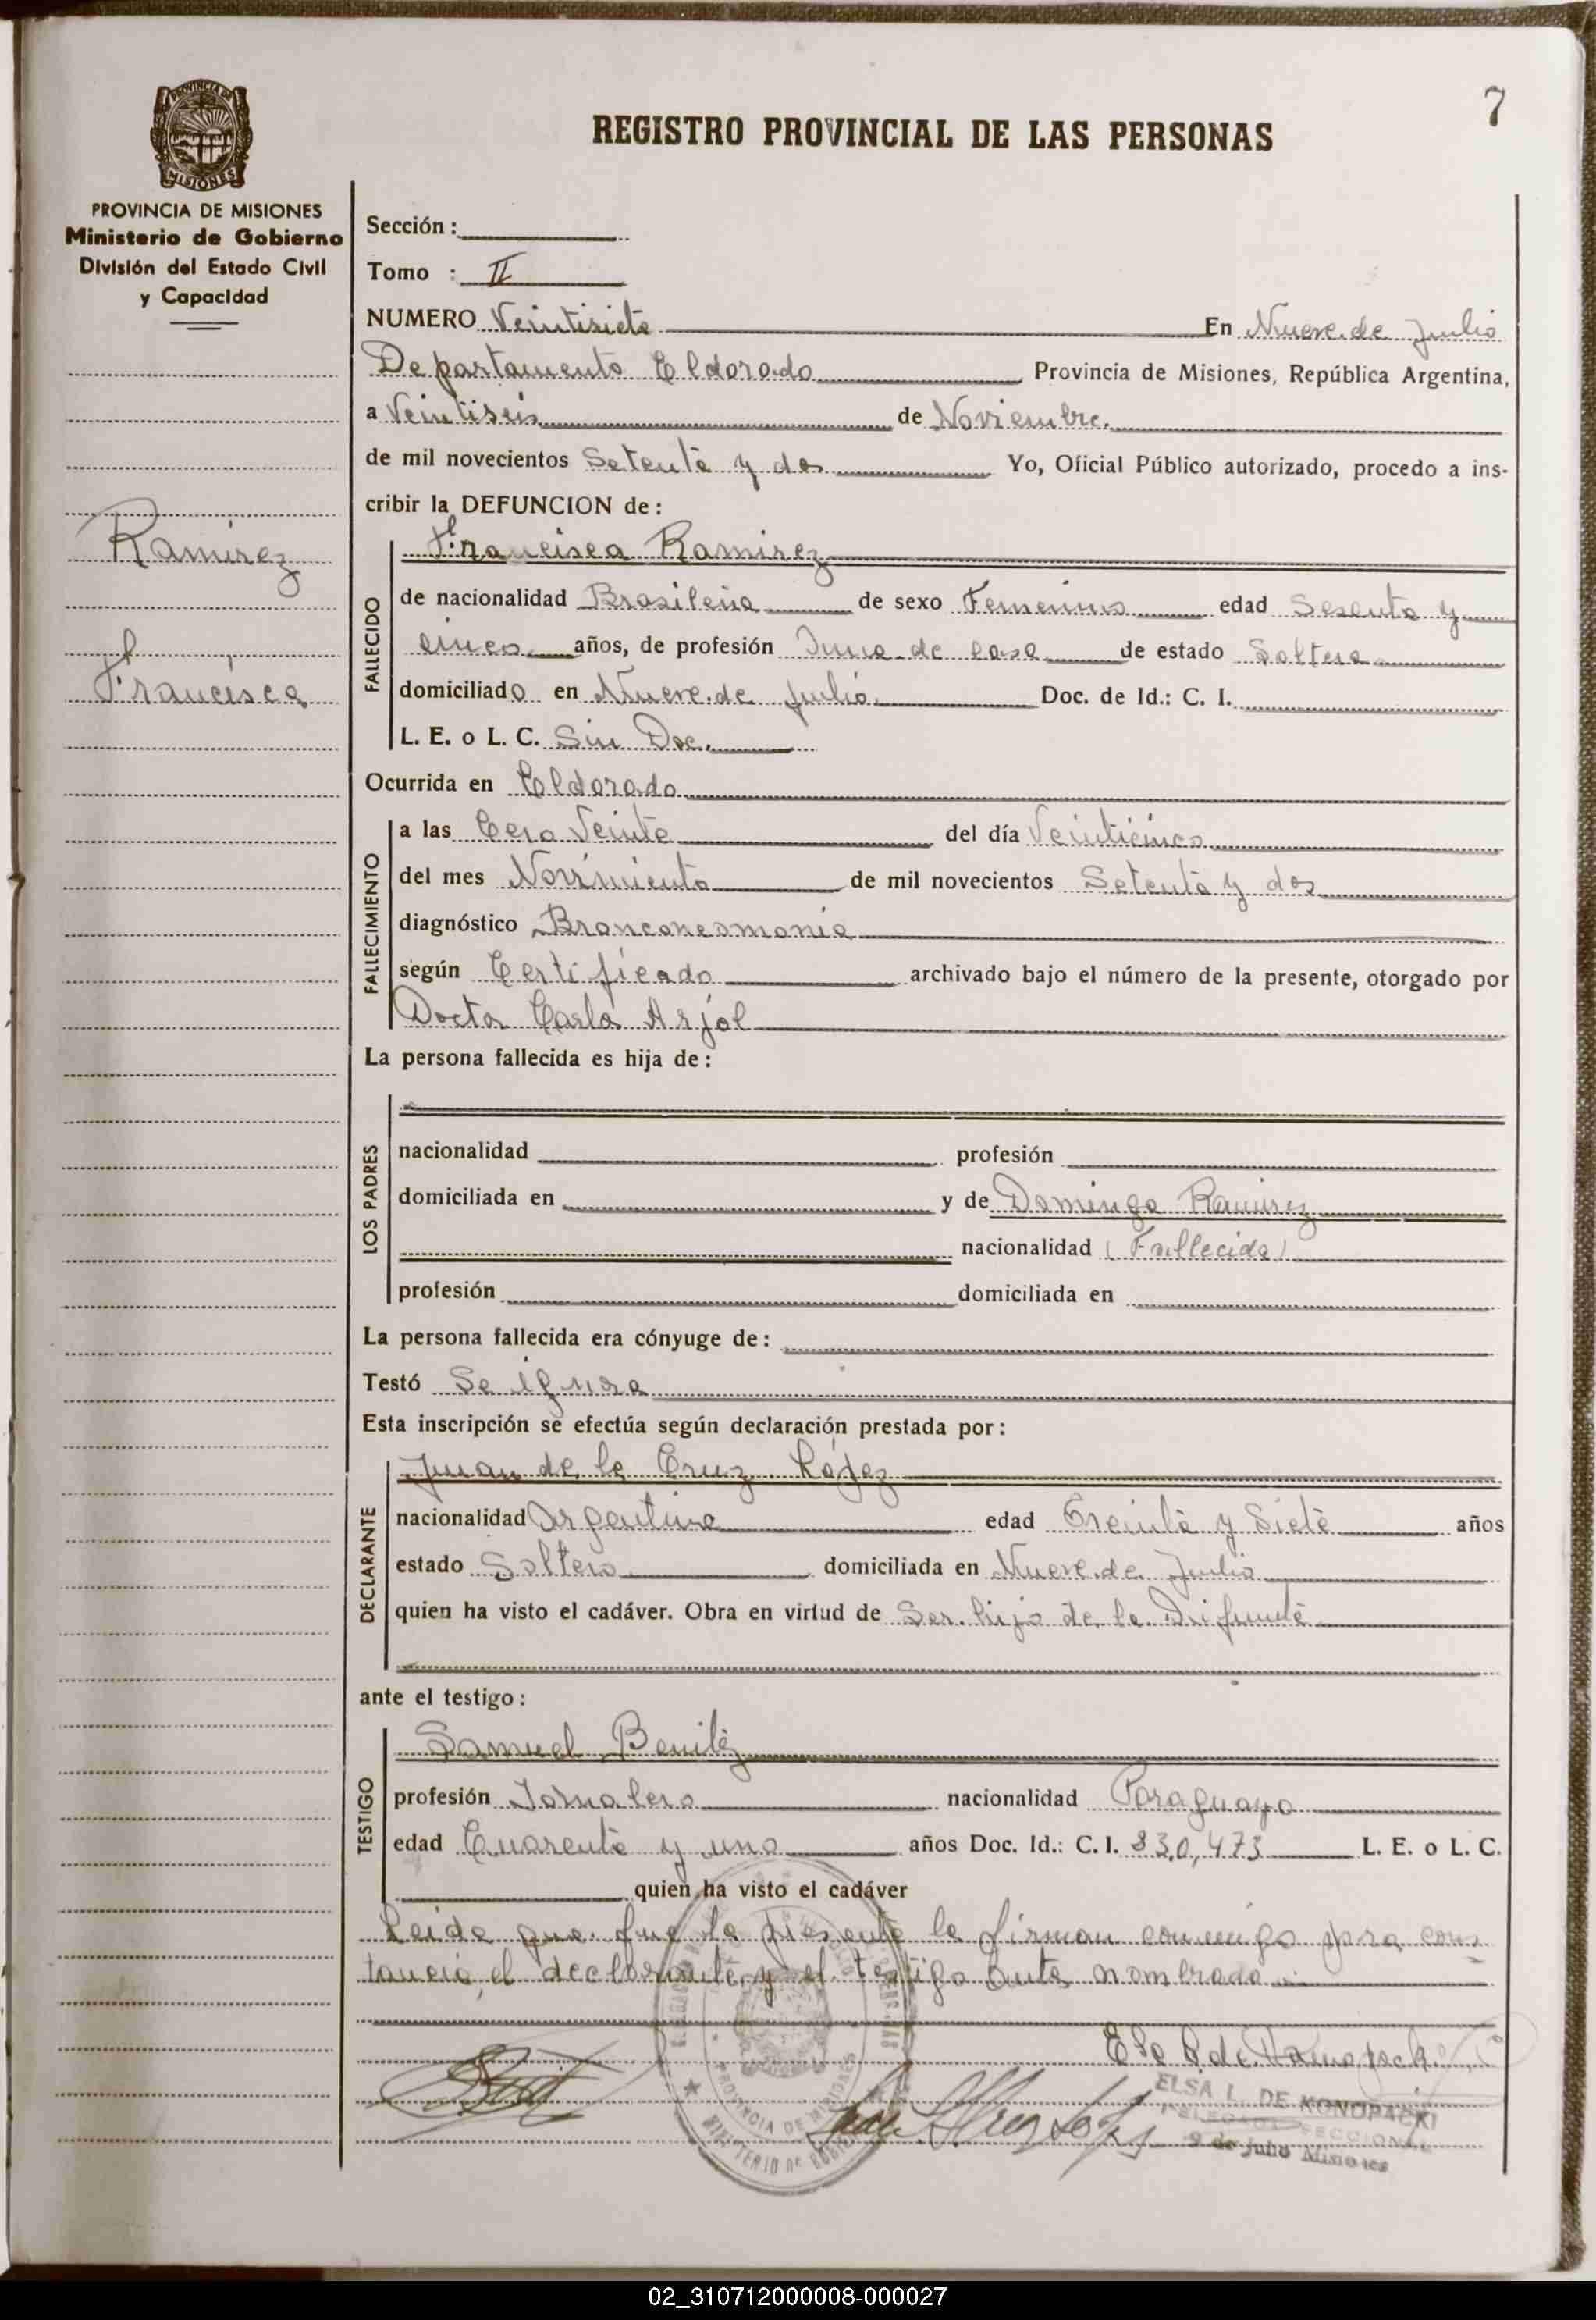 7
REGISTRO PROVINCIAL DE LAS PERSONAS
PROVINCIA DE MISIONES
MISIONES
PROVINCIA DE MISIONES
Ministerio de Gobierno
División del Estado Civil
y Capacidad
Ramirez
Francisca
Sección :
Tomo : II
NUMERO Veintisiete En Nueve de Julio
Departamento Eldorado Provincia de Misiones, República Argentina,
a Veintiseis de Noviembre.
de mil novecientos Setenta y dos Yo, Oficial Público autorizado, procedo a ins-
cribir la DEFUNCION de :
Francisca Ramirez
FALLECIDO
de nacionalidad Brasileña de sexo Femenino edad Sesenta y
cinco años, de profesión Ama de casa de estado Soltera
domiciliado en Nueve de Julio Doc. de Id.: C. I.
L. E. o L. C. Sin Doc.
Ocurrida en Eldorado
FALLECIMIENTO
a las Cero Veinte del día Veinticinco
del mes de mil novecientos Setenta y dos
diagnóstico Bronconeomonia
según Certificado archivado bajo el número de la presente, otorgado por
Doctor Carlos Arjol
La persona fallecida es hija de :
LOS PADRES
nacionalidad profesión
domiciliada en y de Domingo Ramirez
nacionalidad (Fallecido)
profesión domiciliada en
La persona fallecida era cónyuge de :
Testó Se ignora
Esta inscripción se efectúa según declaración prestada por :
Juan de la Cruz López
DECLARANTE
nacionalidad Argentina edad Treinta y Siete años
estado Soltero domiciliada en Nueve de Julio
quien ha visto el cadáver. Obra en virtud de Ser hijo de la
ante el testigo :
Samuel Benitez
TESTIGO
profesión Jornalero nacionalidad Paraguayo
edad Cuarenta y uno años Doc. Id.: C. I. 830,473 L. E. o L. C.
quien ha visto el cadáver
Leida que fue la presente la firman conmigo para cons
tancia el declarante y el testigo ante nombrado
ELSA L. DE KONOPACKI
DELEGADA SECCIONAL
9 de Julio Misiones
PROVINCIA DE MISIONES
MINISTERIO DE GOBIERNO
02_310712000008-000027